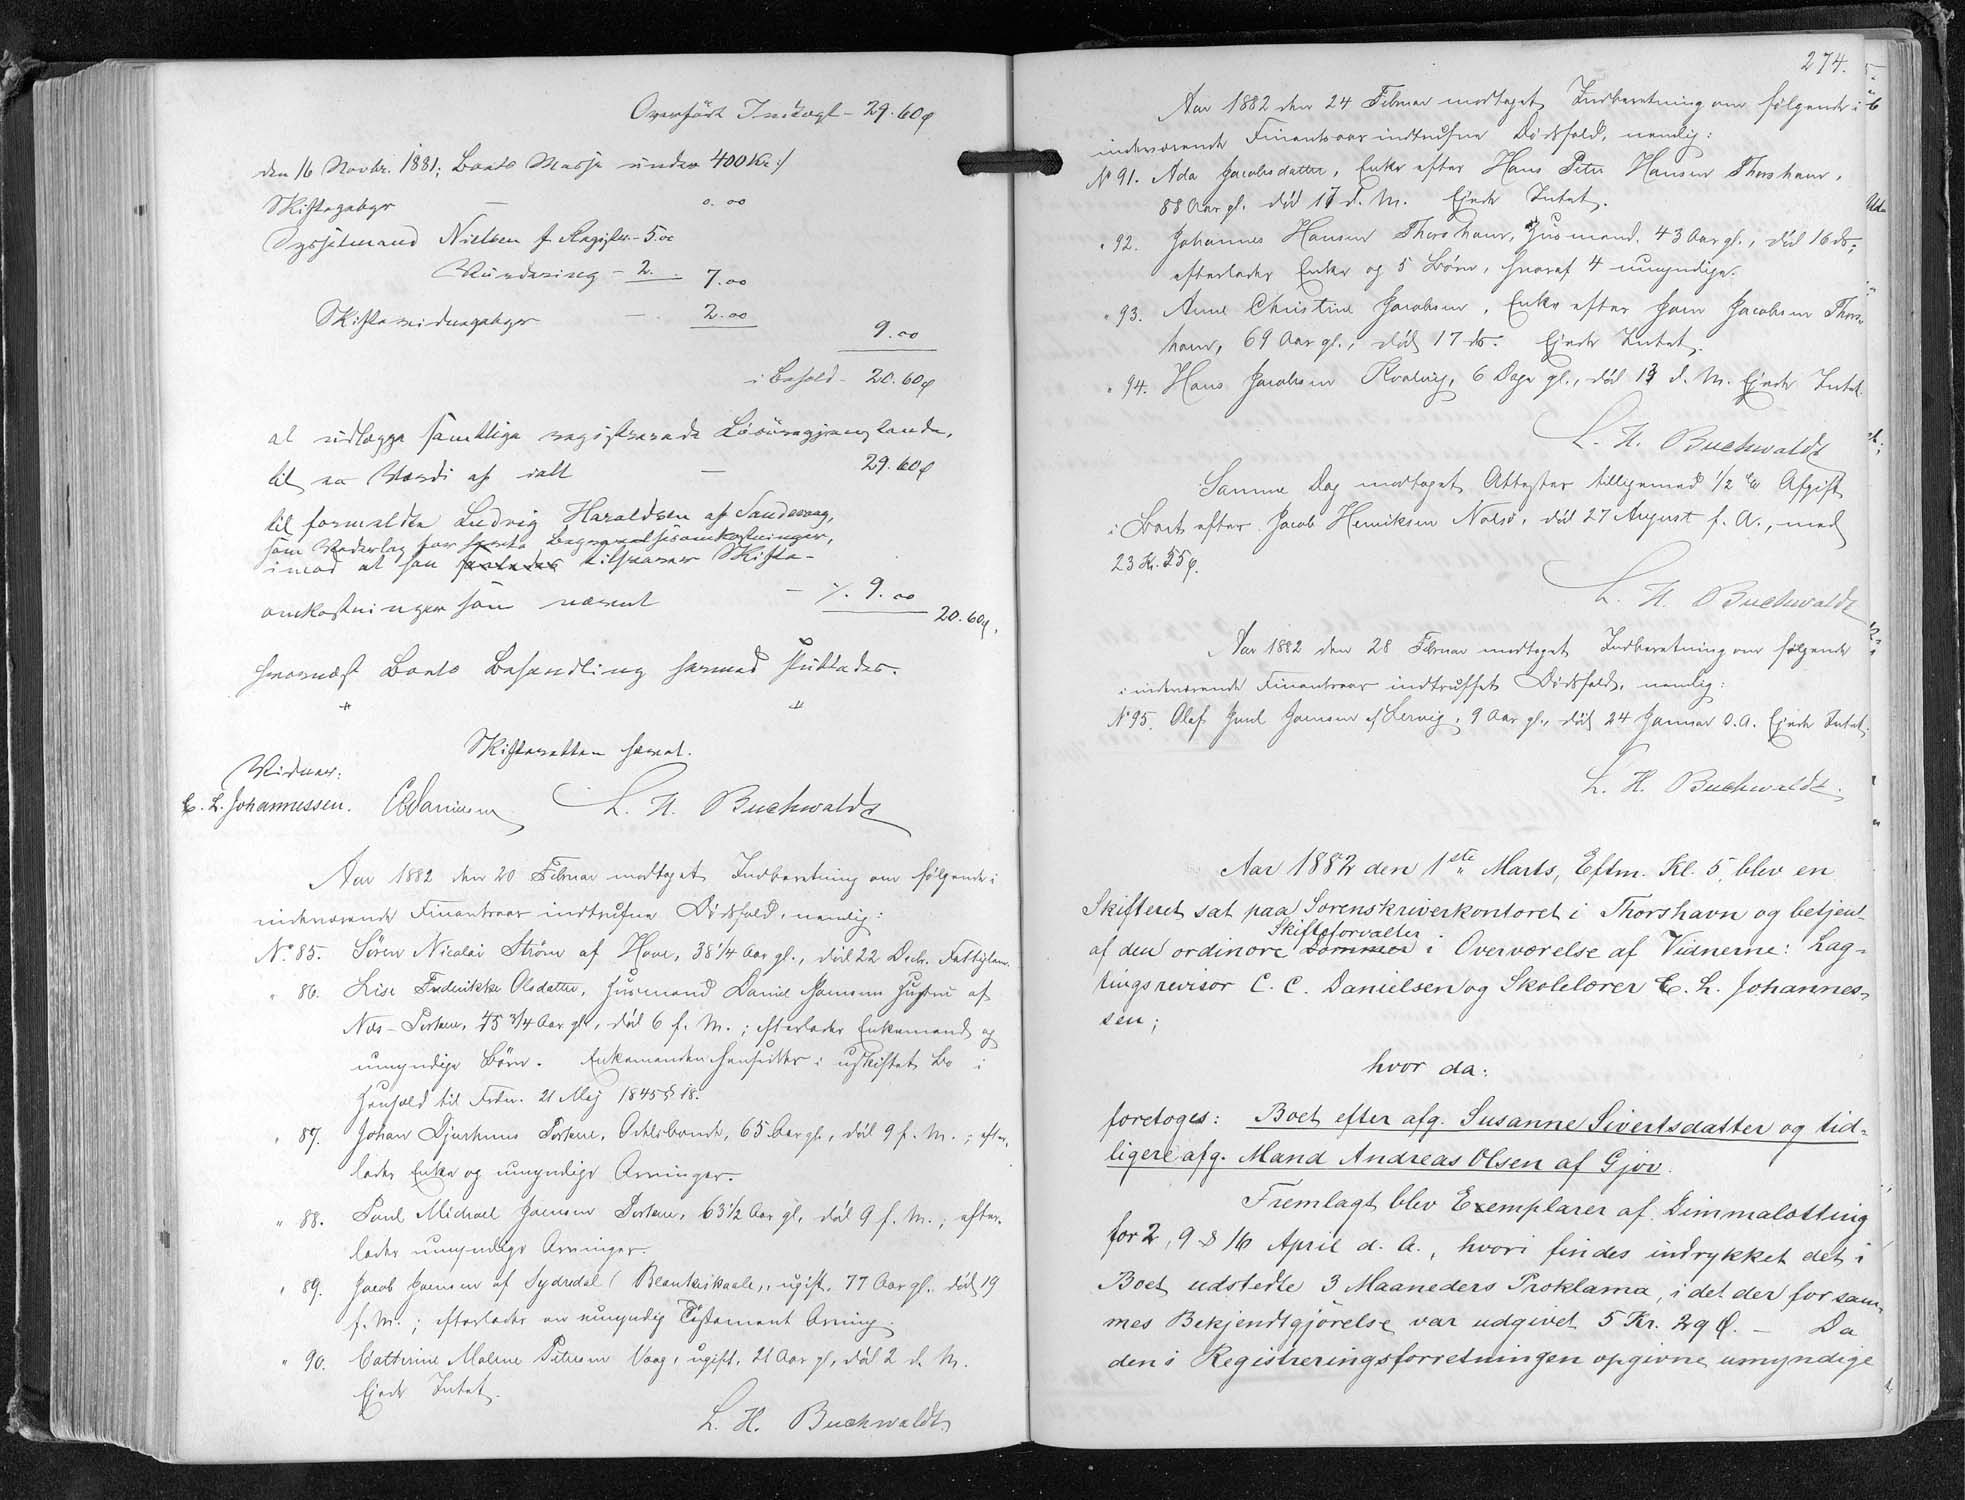 Overført Indtægt - 29.60 ø
den 16 Novbr. 1881; Boets Masse under 400 Kr:/
Skiftegebyr — 0.00
Sysselmand Nielsen f. Registr. - 5.00
Vurdering - 2. " 7.00
Skifteseddelgebyr — 2.00
9.00
i Behold - 20.60 ø
at udlægge samtlige registrerede Løsøregjenstande,
til en Værdi af ialt — 29.60 ø
til formeldte Ludvig Haraldsen af Sandevaag,
som Vederlag for Begravelsesomkostninger,
imod at han tilsvarer Skifte-
omkostninger som nævnt — ÷ 9.00
20.60 ø,
hvornæst Boets Behandling hermed sluttedes.
Skifteretten hævet.
Vidner:
C. L. Johannessen. C. Danielsen L. H. Buchwaldt
Aar 1882 den 20 Februar modtaget Indberetning om følgende i
indeværende Finantsaar indtrufne Dødsfald, nemlig:
No. 85. Sören Nicolai Ström af Hove, 38 1/4 Aar gl., död 22 Decbr. Fattiglem.
" 86. Lise Frederikke Olsdatter, Huusmand Daniel Joensens Hustru af
Næs - Porkere, 45 3/4 Aar gl., död 6 f. M.; efterlader Enkemand og
umyndige Børn. Enkemanden hensidder i uskiftet Bo i
Henhold til Frdn. 21 Maj 1845 § 18.
" 87. Johan Djurhuus Porkere, Odelsbonde, 65 Aar gl., död 9 f. M.; efter-
lader Enke og umyndige Arvinger.
" 88. Poul Michael Joensen Porkere, 63 1/2 Aar gl., död 9 f. M.; efter-
lader umyndige Arvinger.
" 89. Jacob Joensen af Sydredal (Blankeskaale), ugift, 77 Aar gl. död 19
f. M.; efterlader en umyndig Testament Arving.
" 90. Catherine Malene Petersen Vaag, ugift, 21 Aar gl., död 2 d. M.
Ejede Intet.
L. H. Buchwaldt
274.
Aar 1882 den 24 Februar modtaget Indberetning om følgende i
indeværende Finantsaar indtrufne Dødsfald, nemlig:
No 91. Ada Jacobsdatter, Enke efter Hans Peter Hansen Thorshavn,
88 Aar gl. död 17 d. M. Ejede Intet.
" 92. Johannes Hansen Thorshavn, Huusmand. 43 Aar gl., död 16 ds;
efterlader Enke og 5 Børn, hvoraf 4 umyndige.
" 93. Anne Christine Jacobsen, Enke efter Joen Jacobsen Thors-
havn, 69 Aar gl., död 17 ds. Ejede Intet.
" 94. Hans Jacobsen Kvalvig, 6 Dage gl., död 13 d. M. Ejede Intet.
L. H. Buchwaldt
Samme Dag modtaget Attester tilligemed 1/2 % Afgift
i Boet efter Jacob Henriksen Nolsö, död 27 August f. A., med
23 Kr. 55 ø.
L. H. Buchwaldt
Aar 1882 den 28 Februar modtaget Indberetning om følgende
i indeværende Finantsaar indtruffet Dødsfald, nemlig:
No 95. Olaf Juul Joensen af Lervig, 9 Aar gl., död 24 Januar d. A. Ejede Intet.
L. H. Buchwaldt.
Aar 1882 den 1ste Marts, Eftm. Kl. 5, blev en
Skifteret sat paa Sorenskriverkontoret i Thorshavn og betjent
Skifteforvalter
af den ordinære Dommer i Overværelse af Vidnerne: Lag-
tingsrevisor C. C. Danielsen og Skolelærer C. L. Johannes-
sen;
hvor da:
foretoges: Boet efter afg. Susanne Sivertsdatter og tid-
ligere afg. Mand Andreas Olsen af Gjov.
Fremlagt blev Exemplarer af Dimmalætting
for 2, 9 & 16 April d. A., hvori findes indrykket det i
Boet udstedte 3 Maaneders Proklama, i det der for sam-
mes Bekjendtgjörelse var udgivet 5 Kr. 29 Ø. — Da
den i Registreringsforretningen opgivne umyndige